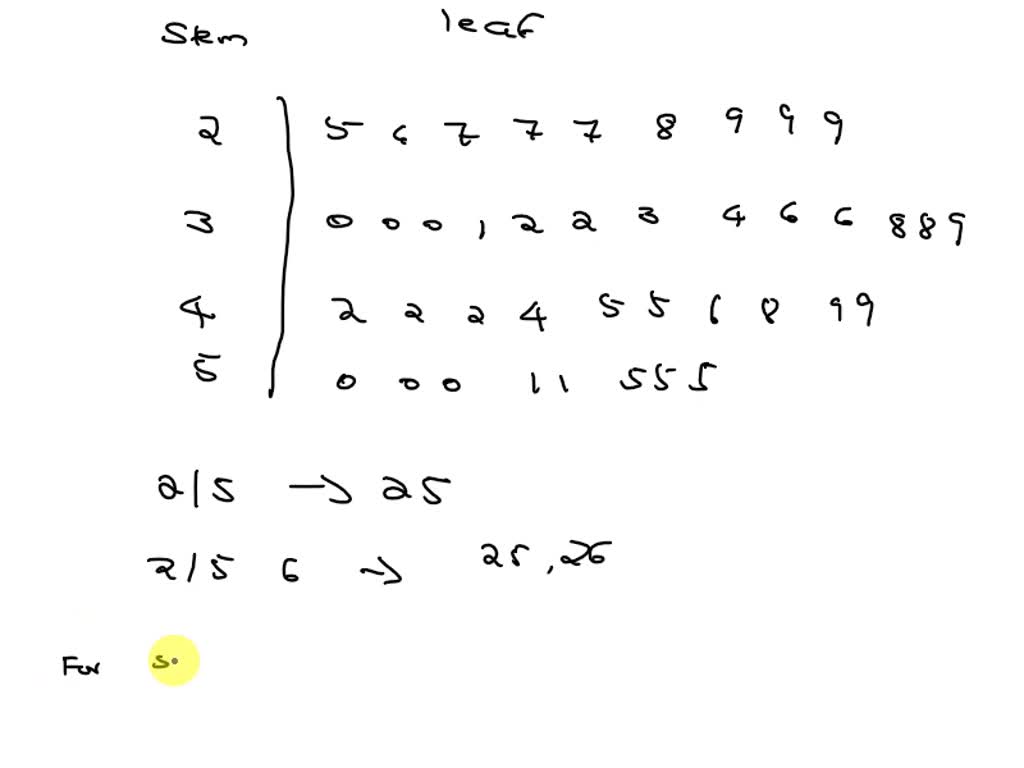 Stem leaf
2 | 5 6 7 7 7 8 9 9 9
3 | 0 0 0 1 2 2 3 4 6 6 8 8 9
4 | 2 2 2 4 5 5 6 8 9 9
5 | 0 0 0 1 1 5 5 5
2/5 → 25
2/5 6 → 25, 26
For s